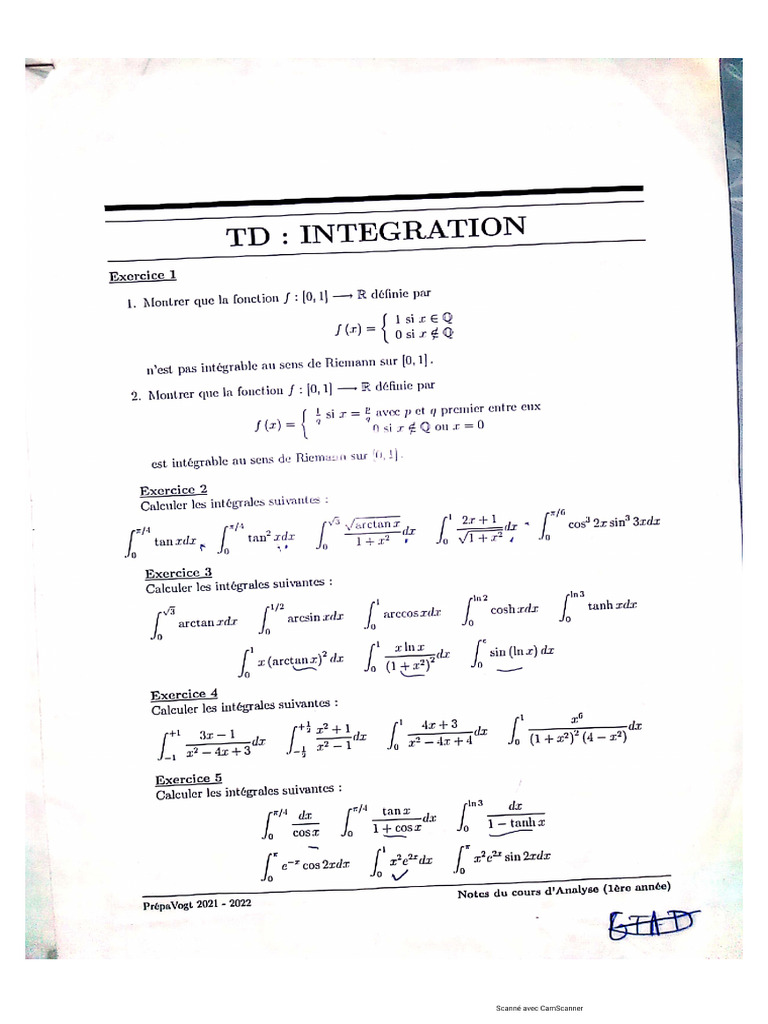 TD : INTEGRATION
Exercice 1
1. Montrer que la fonction f : [0, 1] ⟶ ℝ définie par
f (x) = { 1 si x ∈ ℚ
0 si x ∉ ℚ
n'est pas intégrable au sens de Riemann sur [0, 1] .
2. Montrer que la fonction f : [0, 1] ⟶ ℝ définie par
f (x) = { 1/q si x = p/q avec p et q premier entre eux
0 si x ∉ ℚ ou x = 0
est intégrable au sens de Riemann sur [0, 1] .
Exercice 2
Calculer les intégrales suivantes :
∫_0^{π/4} tan xdx ∫_0^{π/4} tan² xdx ∫_0^{√3} √(arctan x)/(1 + x²) dx ∫_0^1 (2x + 1)/√(1 + x²) dx ∫_0^{π/6} cos³ 2x sin³ 3xdx
Exercice 3
Calculer les intégrales suivantes :
∫_0^{√3} arctan xdx ∫_0^{1/2} arcsin xdx ∫_0^1 arccos xdx ∫_0^{ln 2} cosh xdx ∫_0^{ln 3} tanh xdx
∫_0^1 x (arctan x)² dx ∫_0^1 x ln x/(1 + x²)² dx ∫_0^e sin (ln x) dx
Exercice 4
Calculer les intégrales suivantes :
∫_{-1}^{+1} (3x − 1)/(x² − 4x + 3) dx ∫_{-1/2}^{+1/2} (x² + 1)/(x² − 1) dx ∫_0^1 (4x + 3)/(x² − 4x + 4) dx ∫_0^1 x⁶/((1 + x²)² (4 − x²)) dx
Exercice 5
Calculer les intégrales suivantes :
∫_0^{π/4} dx/cos x ∫_0^{π/4} tan x/(1 + cos x) dx ∫_0^{ln 3} dx/(1 − tanh x)
∫_0^π e^{−x} cos 2xdx ∫_0^1 x²e^{2x}dx ∫_0^π x²e^{2x} sin 2xdx
PrépaVogt 2021 - 2022
Notes du cours d'Analyse (1ère année)
Scanné avec CamScanner